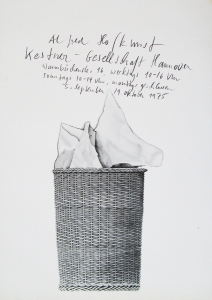 Alfred Hofkunst
Kestner-Gesellschaft Hannover
Warmbüchenstr. 16, werktags 10-16 Uhr
sonntags 10-14 Uhr, montags geschlossen
5. September 19. Oktober 1975